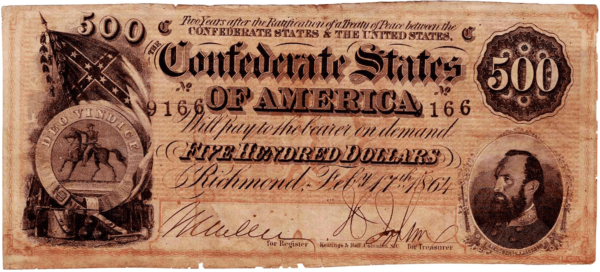 500
C
Two Years after the Ratification of a Treaty of Peace between the
CONFEDERATE STATES & THE UNITED STATES,
C
THE
Confederate States
OF AMERICA
No
9166
No
166
500
DEO VINDICE
Will pay to the bearer on demand
FIVE HUNDRED DOLLARS
Richmond, Feby. 17th 1864
for Register
Keatinge & Ball, Columbia, S.C.
for Treasurer